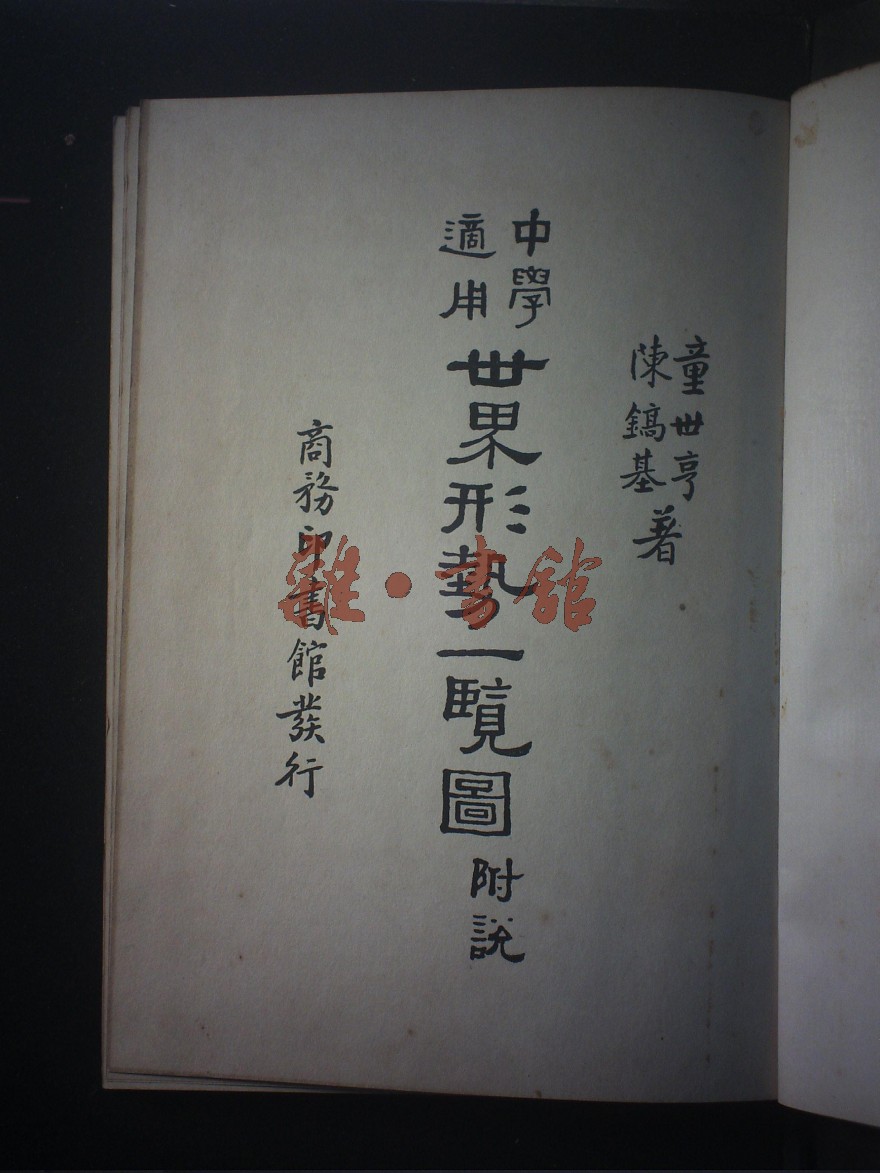 童世亨
陳鎬基
著
中學
適用
世界形勢一覽圖
附說
商務印書館發行
雜·書館